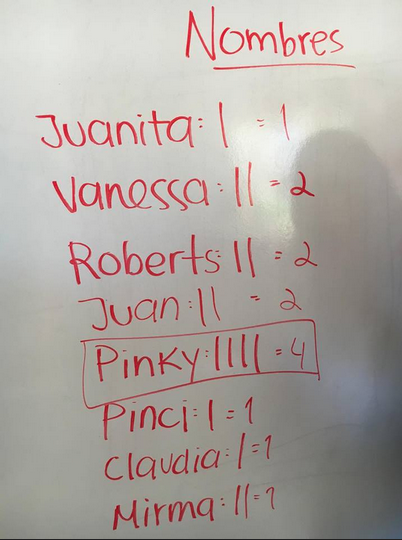 Nombres
Juanita: | = 1
Vanessa: || = 2
Roberts: || = 2
Juan: || = 2
Pinky: |||| = 4
Pinci: | = 1
Claudia: | = 1
Mirma: || = 1